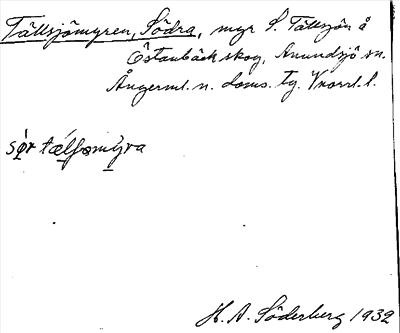 Tällsjömyren, Södra, myr S. Tällsjön å
Östanbäck skog, Anundsjö sn.
Ångerml. n. doms. tg. Vnorrl. l.
sö̀r tælʃəmy̆ra
H. A. Söderberg 1932